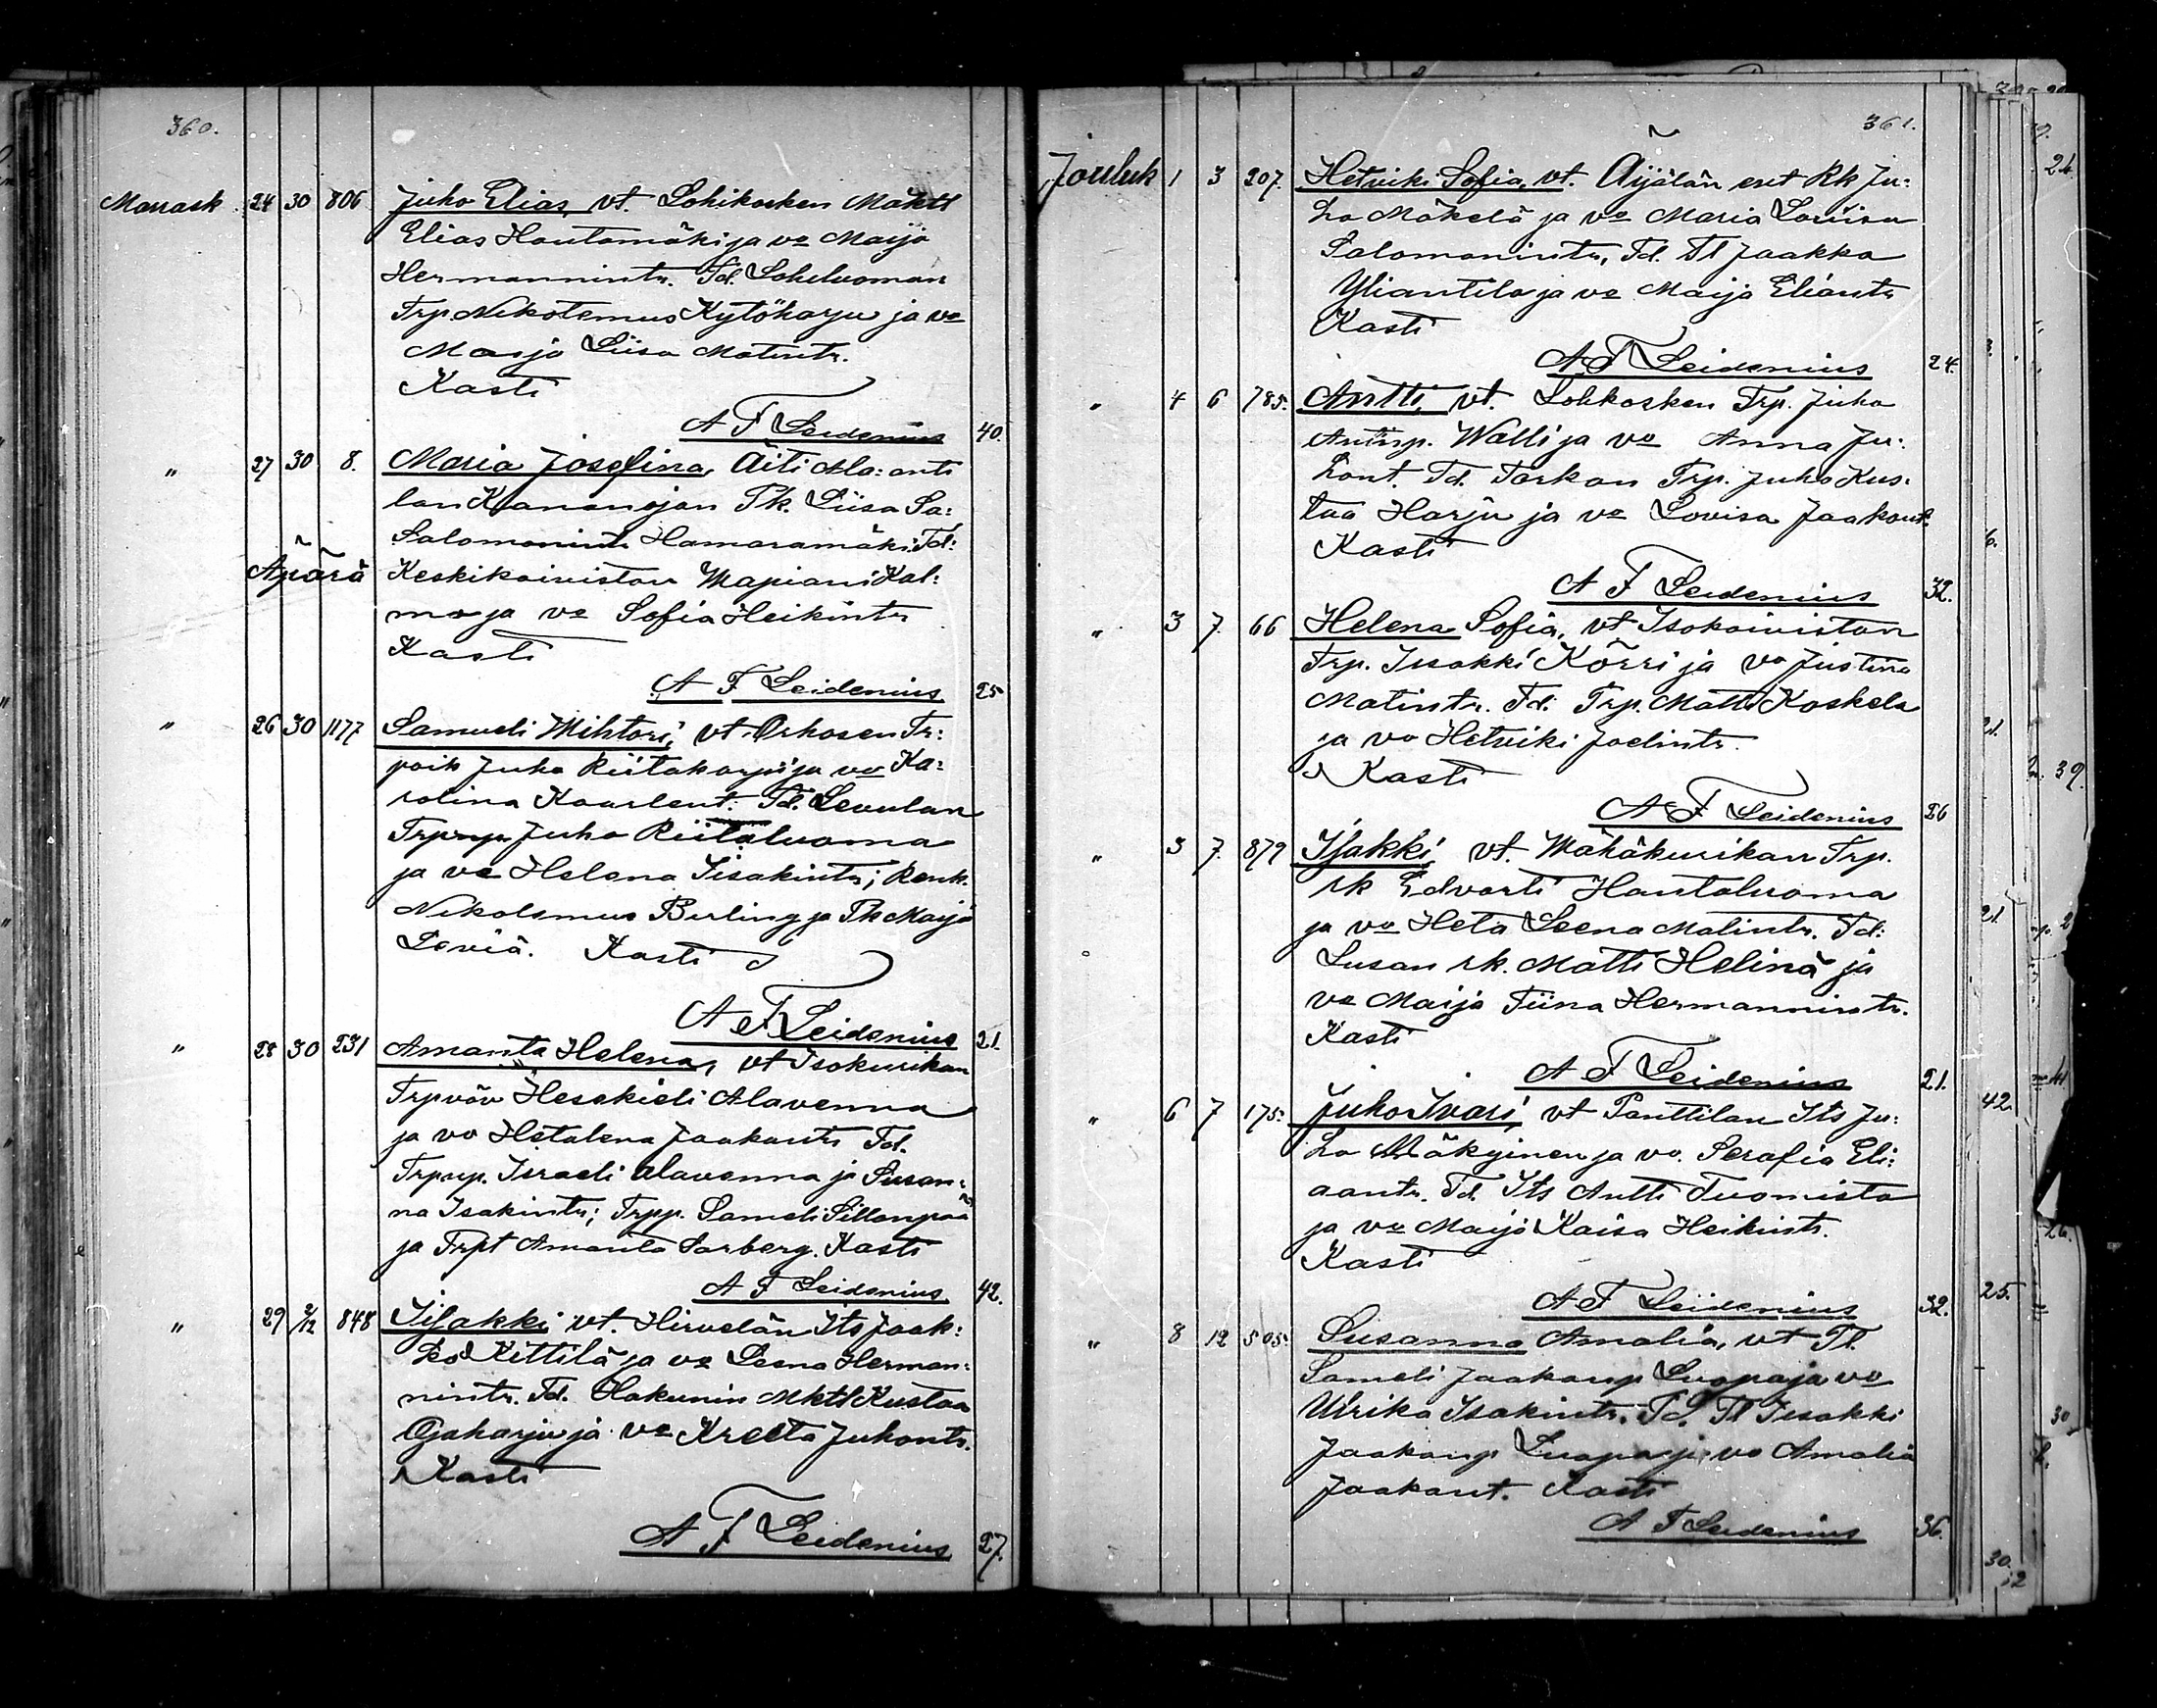 360.
Marrask 24 30 806 Juho Elias, vt. Lohikosken Mäktl
Elias Hautamäki ja vo Maija
Hermannintr. Td. Loheluoman
Trp Nikotemus Kytöharju ja vo
Maija Liisa Matintr.
Kasti
A F Leidenius 40.
" 27 30 8. Maria Josefina, Äiti Ala: anti
lan Kananojan Pk. Liisa Sa:
Salomonint. Hamaramäki. Td:
Äpärä Keskikoiviston Mapiani Kal:
mo ja vo Sofia Heikintr
Kasti
A F Leidenius 25
" 26 30 1177 Samueli Mihtori, vt. Orhosen Tr:
poik Juho Riitakorpi ja vo Ka:
rolina Kaarlent. Td. Levulan
Trpnp Juho Riitaluoma
ja vo Helena Iisakintr; Renk.
Nikolemus Berling ja Pk Maija
Leviä. Kasti
A F Leidenius 21.
" 28 30 231 Amanta Helena, vt Isokurikan
Trpväv Hesekieli Alavenna
ja vo Hetalena Jaakontr Td.
Trpnp. Israeli Alavenna ja Susan:
na Isakintr; Trpp. Sameli Sillanpää
ja Trpt Amanta Sarberg. Kasti
A F Leidenius 42.
" 29 2/12 848 Iisakki vt. Hirvelän Its Jaak:
ko Kittilä ja vo Leena Herman:
nintr. Td. Hakunin Mktl Kustaa
Ojaharju ja vo Kreeta Juhontr.
Kasti
A F Leidenius 27.
361.
Jouluk 1 3 207. Hetviki Sofia, vt. Äijälän ent Rk Ju:
ho Mäkelä ja vo Maria Lovisa
Salomonintr, Td. Tl Jaakko
Yliantila ja vo Maija Eliantr
Kasti
A F Leidenius 24.
" 4 6 785. Antti, vt. Lohkosken Trp. Juho
Antinp. Walli ja vo Anna Ju:
hont. Td. Tarkan Trp. Juho Kus:
taa Harju ja vo Lovisa Jaakont.
Kasti
A F Leidenius 32.
" 3 7. 66 Helena Sofia, vt Isokoiviston
Trp. Iisakki Körri ja vo Justina
Matintr. Td: Trp. Matti Koskela
ja vo Hetviki Joelintr.
Kasti
A F Leidenius 26
" 3 7. 879 Isakki, vt. Mähäkurikan Trp.
rk Edvarti Hautaluoma
ja vo Heta Leena Matintr. Td:
Lusan rk. Matti Helinä ja
vo Maija Tiina Hermannintr.
Kasti
A F Leidenius 21.
" 6 7 175. Juho Ivari, vt Panttilan Its Ju:
ho Mäkyinen ja vo. Serafia Eli:
aantr. Td. Its Antti Tuomisto
ja vo Maija Kaisa Heikintr.
Kasti
A F Leidenius 32.
" 8 12 505. Susanna Amalia, vt Tl.
Sameli Jaakonp Luopa ja vo
Ulrika Isakintr. Td. Tl Iisakki
Jaakonp Luopa ja vo Amalia
Jaakont. Kasti
A F Leidenius 36.